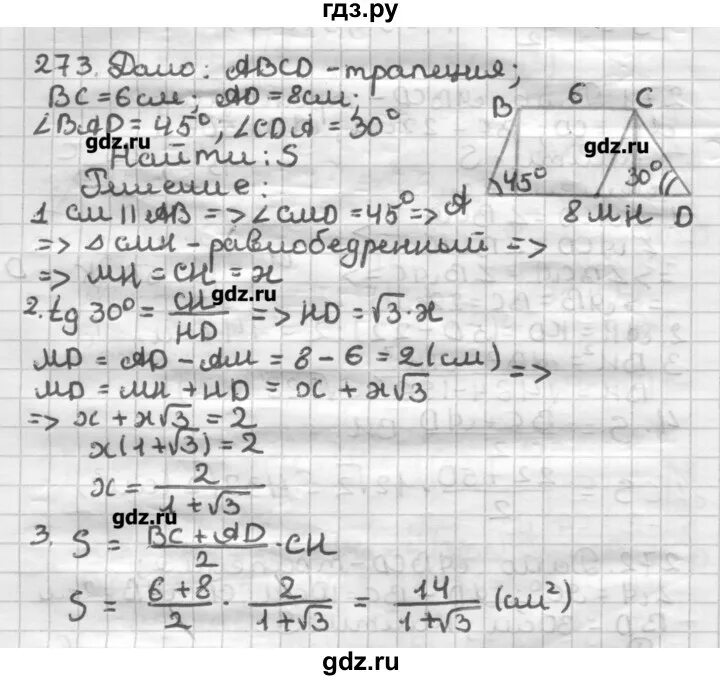 гдз.ру
273. Дано: ABCD - трапеция;
BC = 6 см; AD = 8 см;
∠BAD = 45°; ∠CDA = 30°
gdz.ru
Найти: S
Решение:
B 6 C
gdz.ru
45° 30°
A 8 M H D
1 CM || AB => ∠CMD = 45° =>
=> Δ CMH - равнобедренный =>
=> MH = CH = x
gdz.ru
2. tg 30° = CH/HD => HD = √3 · x
MD = AD - AM = 8 - 6 = 2 (см) =>
MD = MH + HD = x + x√3
=> x + x√3 = 2
x(1+√3) = 2
x = 2/(1+√3)
gdz.ru
3. S = (BC + AD)/2 · CH
S = (6+8)/2 · 2/(1+√3) = 14/(1+√3) (см²)
gdz.ru